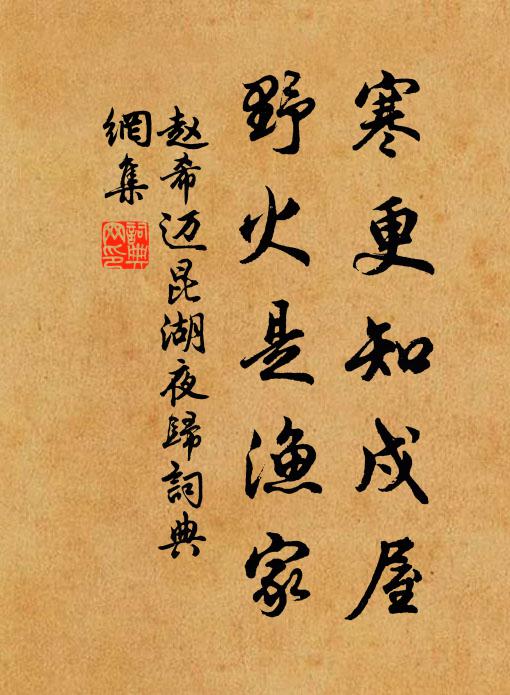 寒更知戍屋
野火是渔家
赵希迈昆湖夜歸詞典
網集
詞典
网印